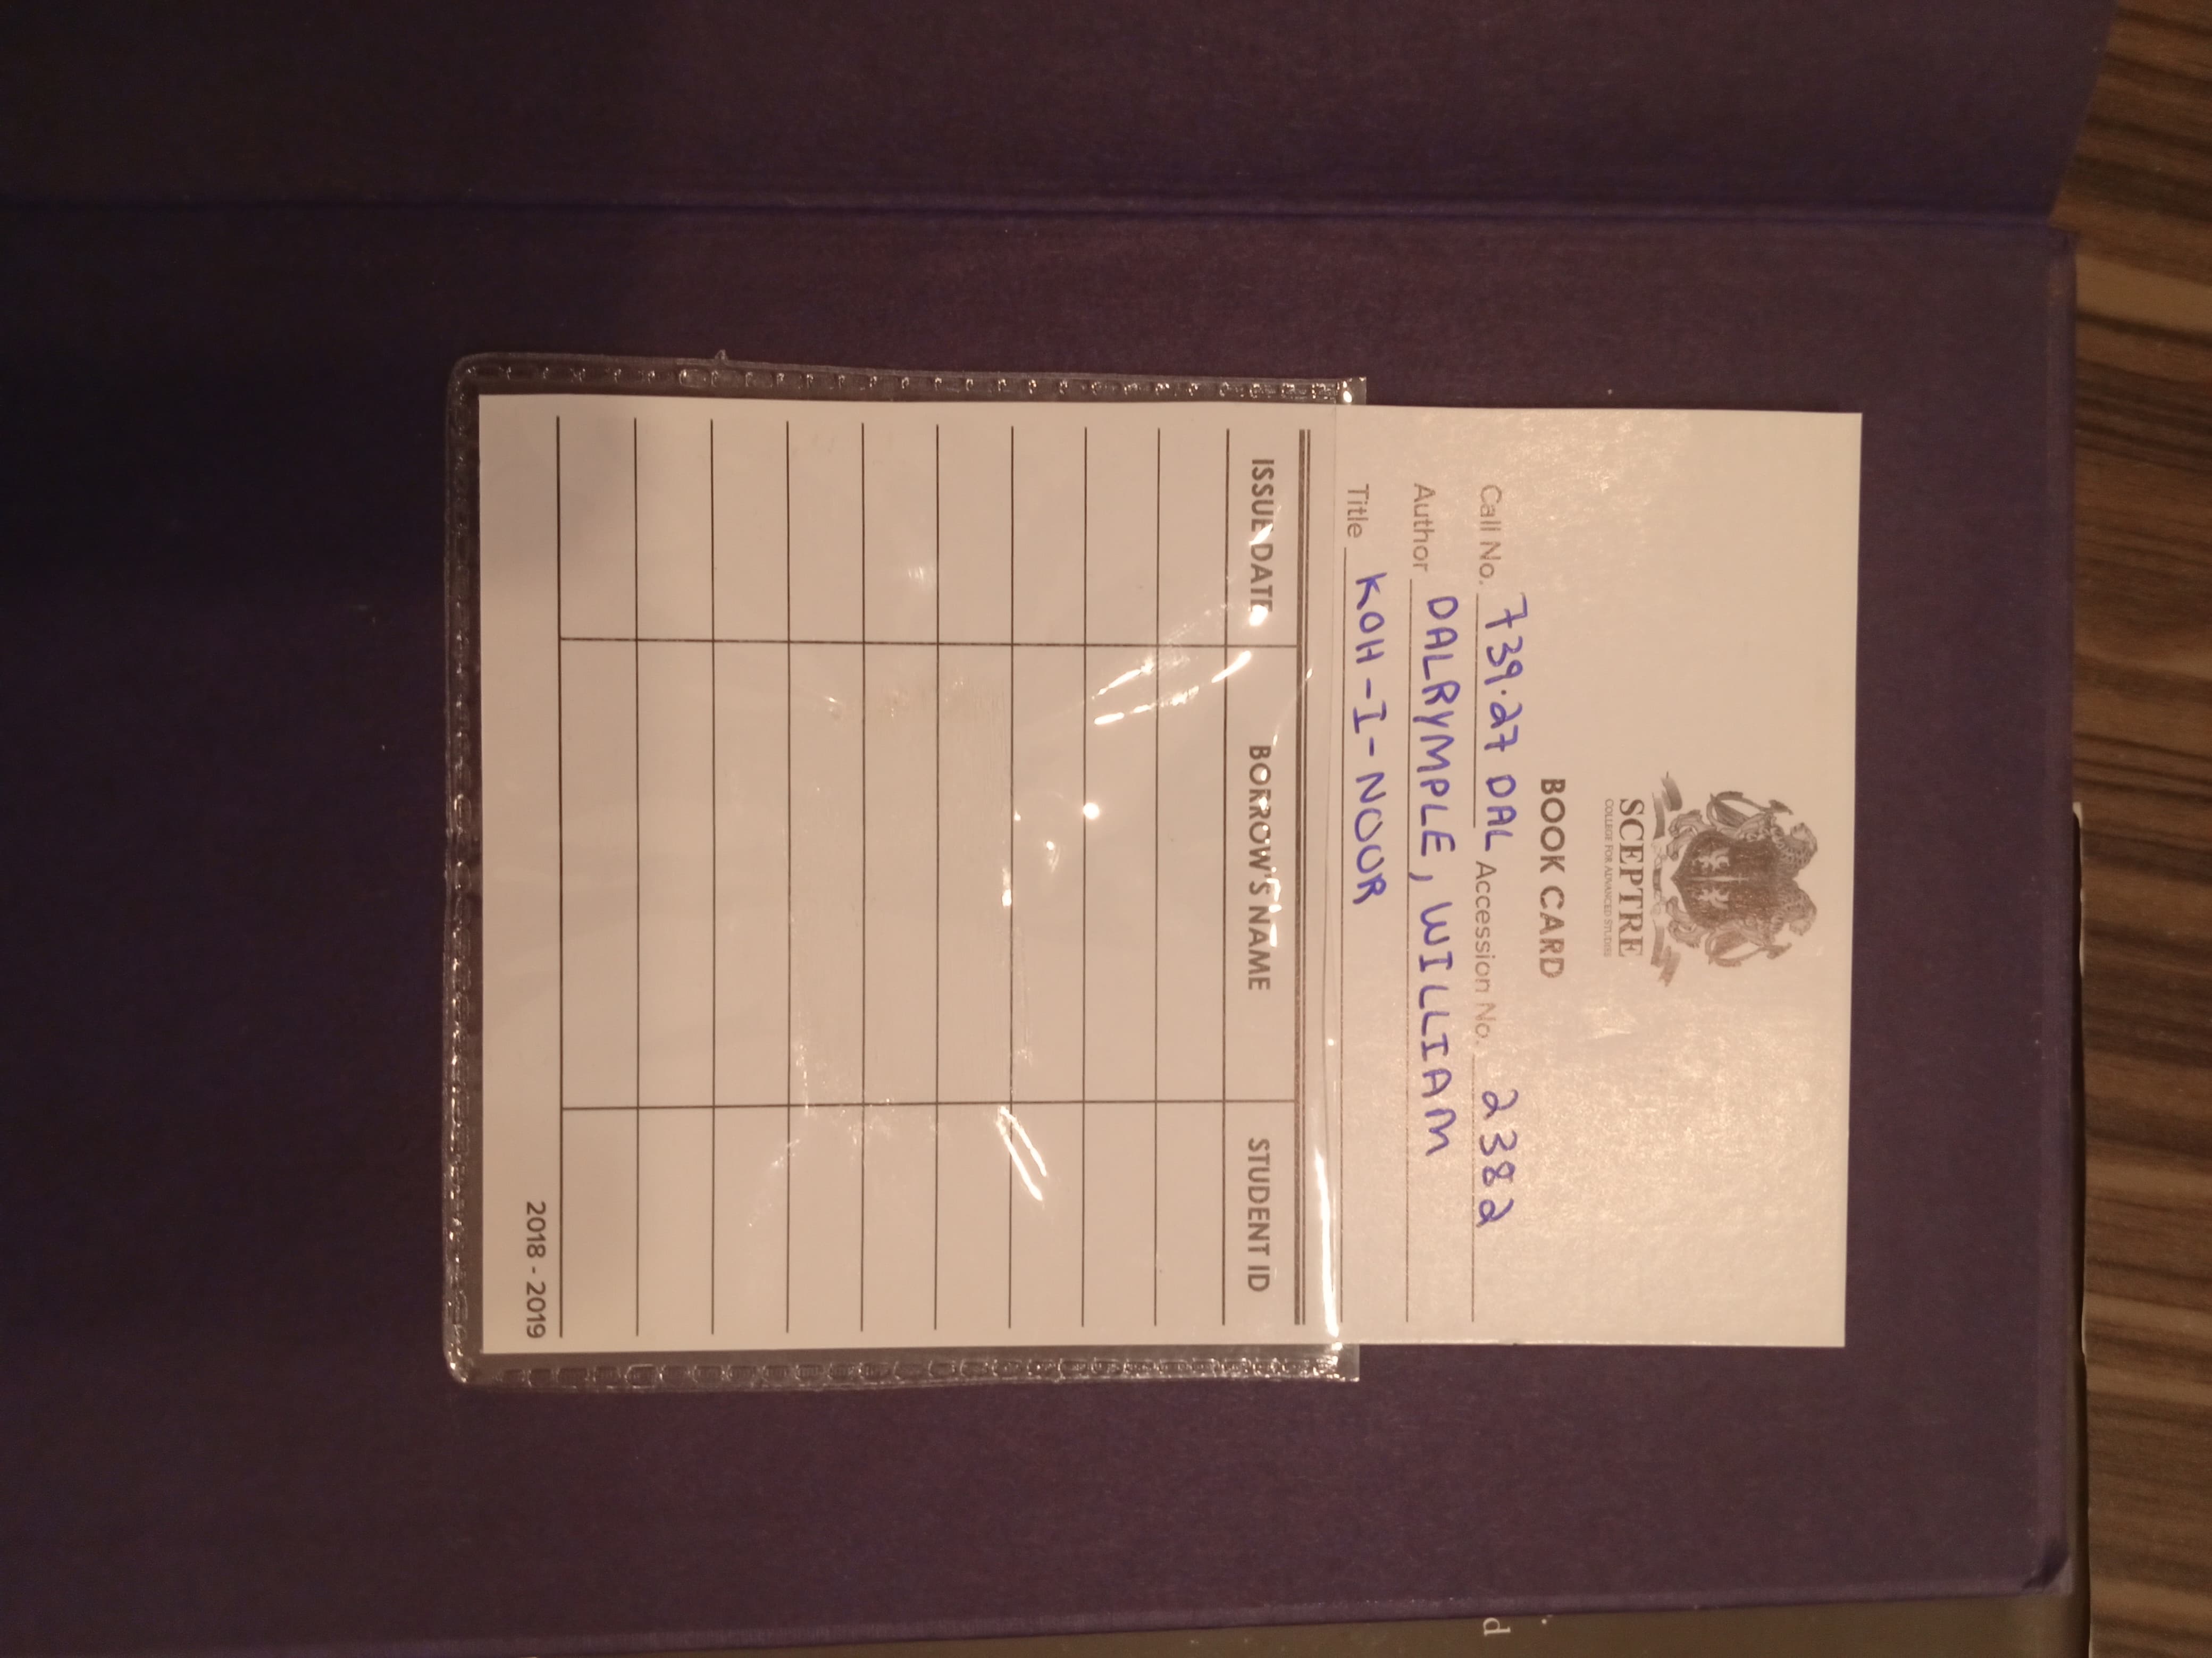 SCEPTRE
COLLEGE FOR ADVANCED STUDIES
BOOK CARD
Call No. 739.27 DAL Accession No. 2382
Author DALRYMPLE, WILLIAM
Title KOH-I-NOUR
ISSUE DATE BORROW'S NAME STUDENT ID
2018 - 2019
d